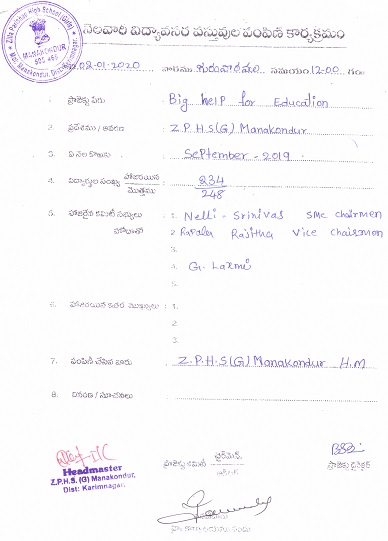 నెలవారీ విద్యావసర వస్తువుల పంపిణీ కార్యక్రమం
Zilla Parishad High School (Girls)
MANAKONDUR
505 469
09-01-2020 వారము గురువారము సమయం 12-00 గం
1. ప్రాజెక్టు పేరు : Big help for Education
2. ప్రదేశము / ఆవరణ : Z.P.H.S(G) Manakondur
3. ఏ నెల కొరకు : SePtember - 2019
4. విద్యార్థుల సంఖ్య హాజరయిన / మొత్తము : 234 / 248
5. హాజరైన కమిటీ సభ్యులు : 1. Nelli - Srinivas SMC chairmen
హోదాతో 2. Rajitha Vice chairmon
3.
4. G. Laxmi
5.
6. హాజరయిన ఇతర ముఖ్యులు : 1.
2.
3.
7. పంపిణి చేసిన వారు : Z.P.H.S(G) Manakondur H.M
8. వివరణ / సూచనలు :
Headmaster
Z.P.H.S. (G) Manakondur,
Dist: Karimnagar.
ప్రాజెక్టు కమిటీ చైర్మెన్
ప్రాజెక్టు డైరెక్టర్